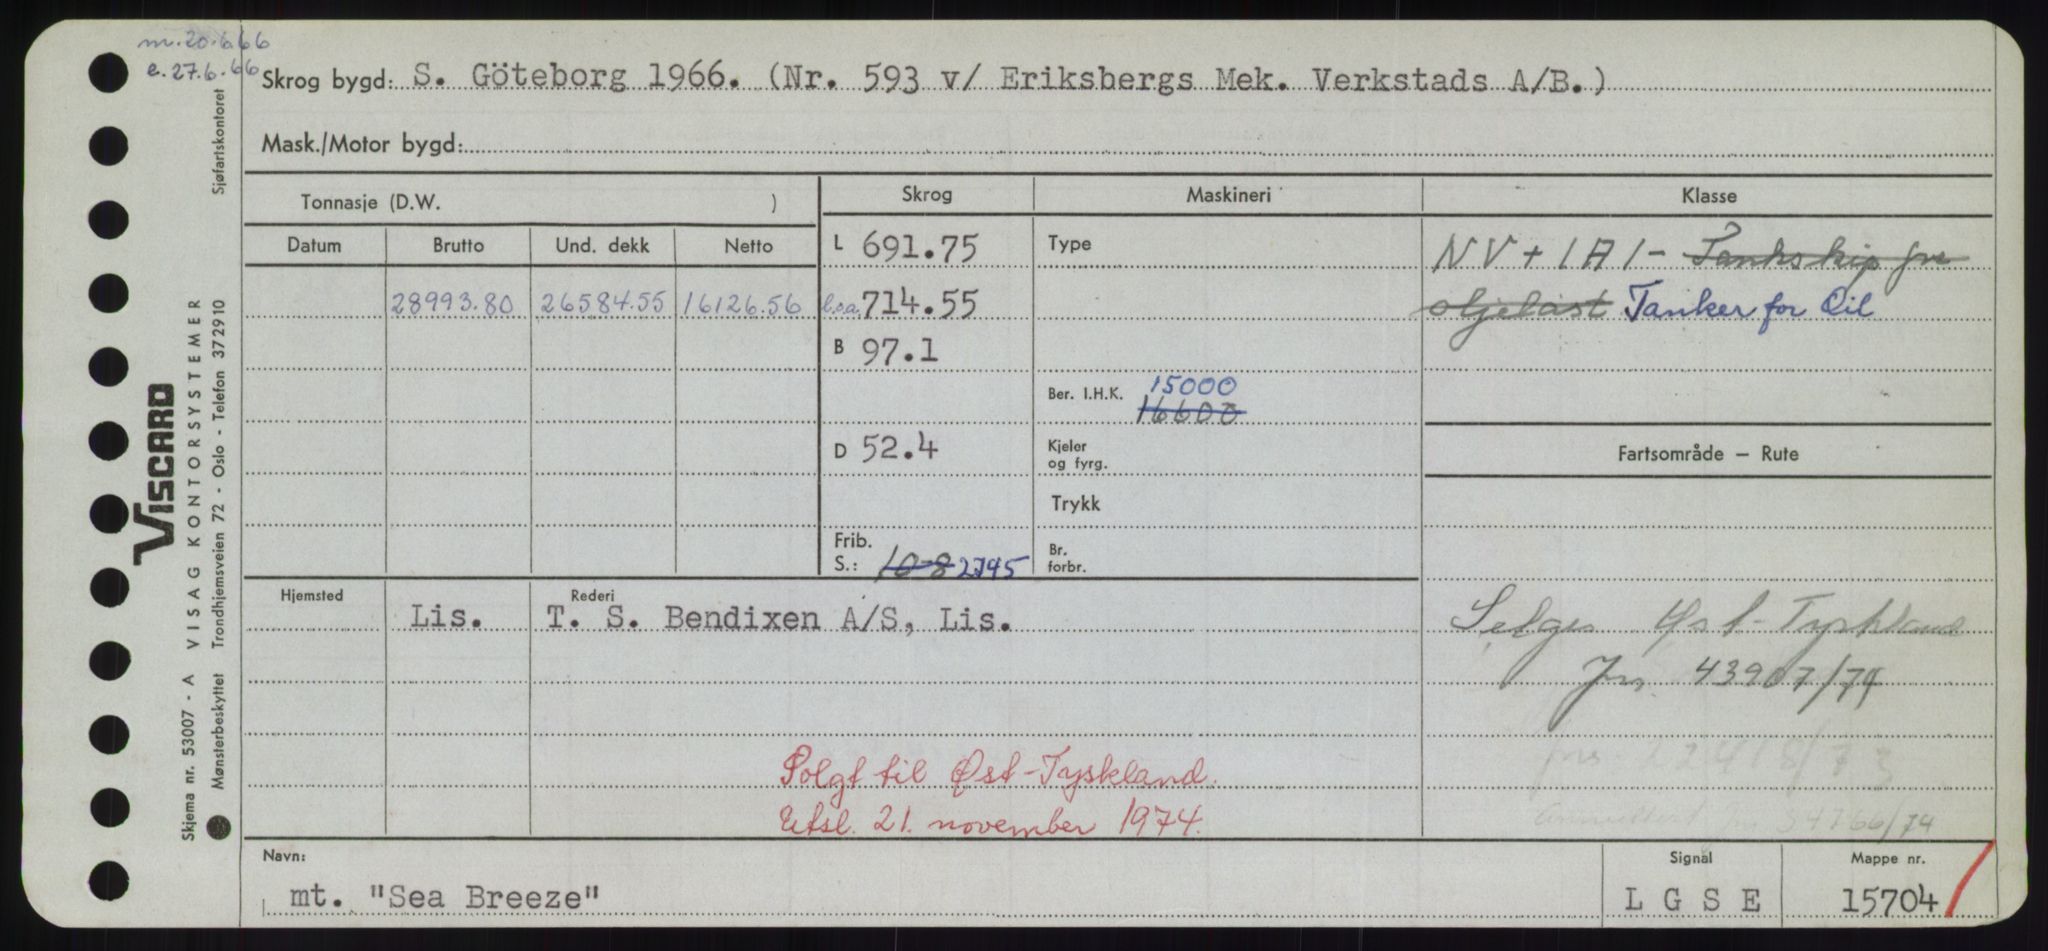 m. 20.6.66
e. 27.6.66
Skrog bygd: S. Göteborg 1966. (Nr. 593 v/ Eriksbergs Mek. Verkstads A/B.)
Mask./Motor bygd:
Tonnasje (D.W. )
Skrog
Maskineri
Klasse
Datum Brutto Und. dekk Netto
28993.80 26584.55 16126.56
L 691.75
l.o.a. 714.55
B 97.1
D 52.4
Frib. S.: 10-8 2745
Type
Ber. I.H.K. 15000
16600
Kjeler og fyrg.
Trykk
Br. forbr.
NV + 1A1 - Tankskip for
oljelast Tanker for Oil
Fartsområde — Rute
Hjemsted
Rederi
Lis. T. S. Bendixen A/S, Lis.
Selges Øst-Tyskland
Jnr. 43907/74
jnr. 22418/73
Jnr 34766/74
Solgt til Øst-Tyskland.
Utsl. 21. november 1974.
Navn:
mt. "Sea Breeze"
Signal
L G S E
Mappe nr.
15704
VISCARD
Skjema nr. 53007 - A VISAG KONTORSYSTEMER
Mønsterbeskyttet Trondhjemsveien 72 - Oslo - Telefon 372910
Sjøfartskontoret